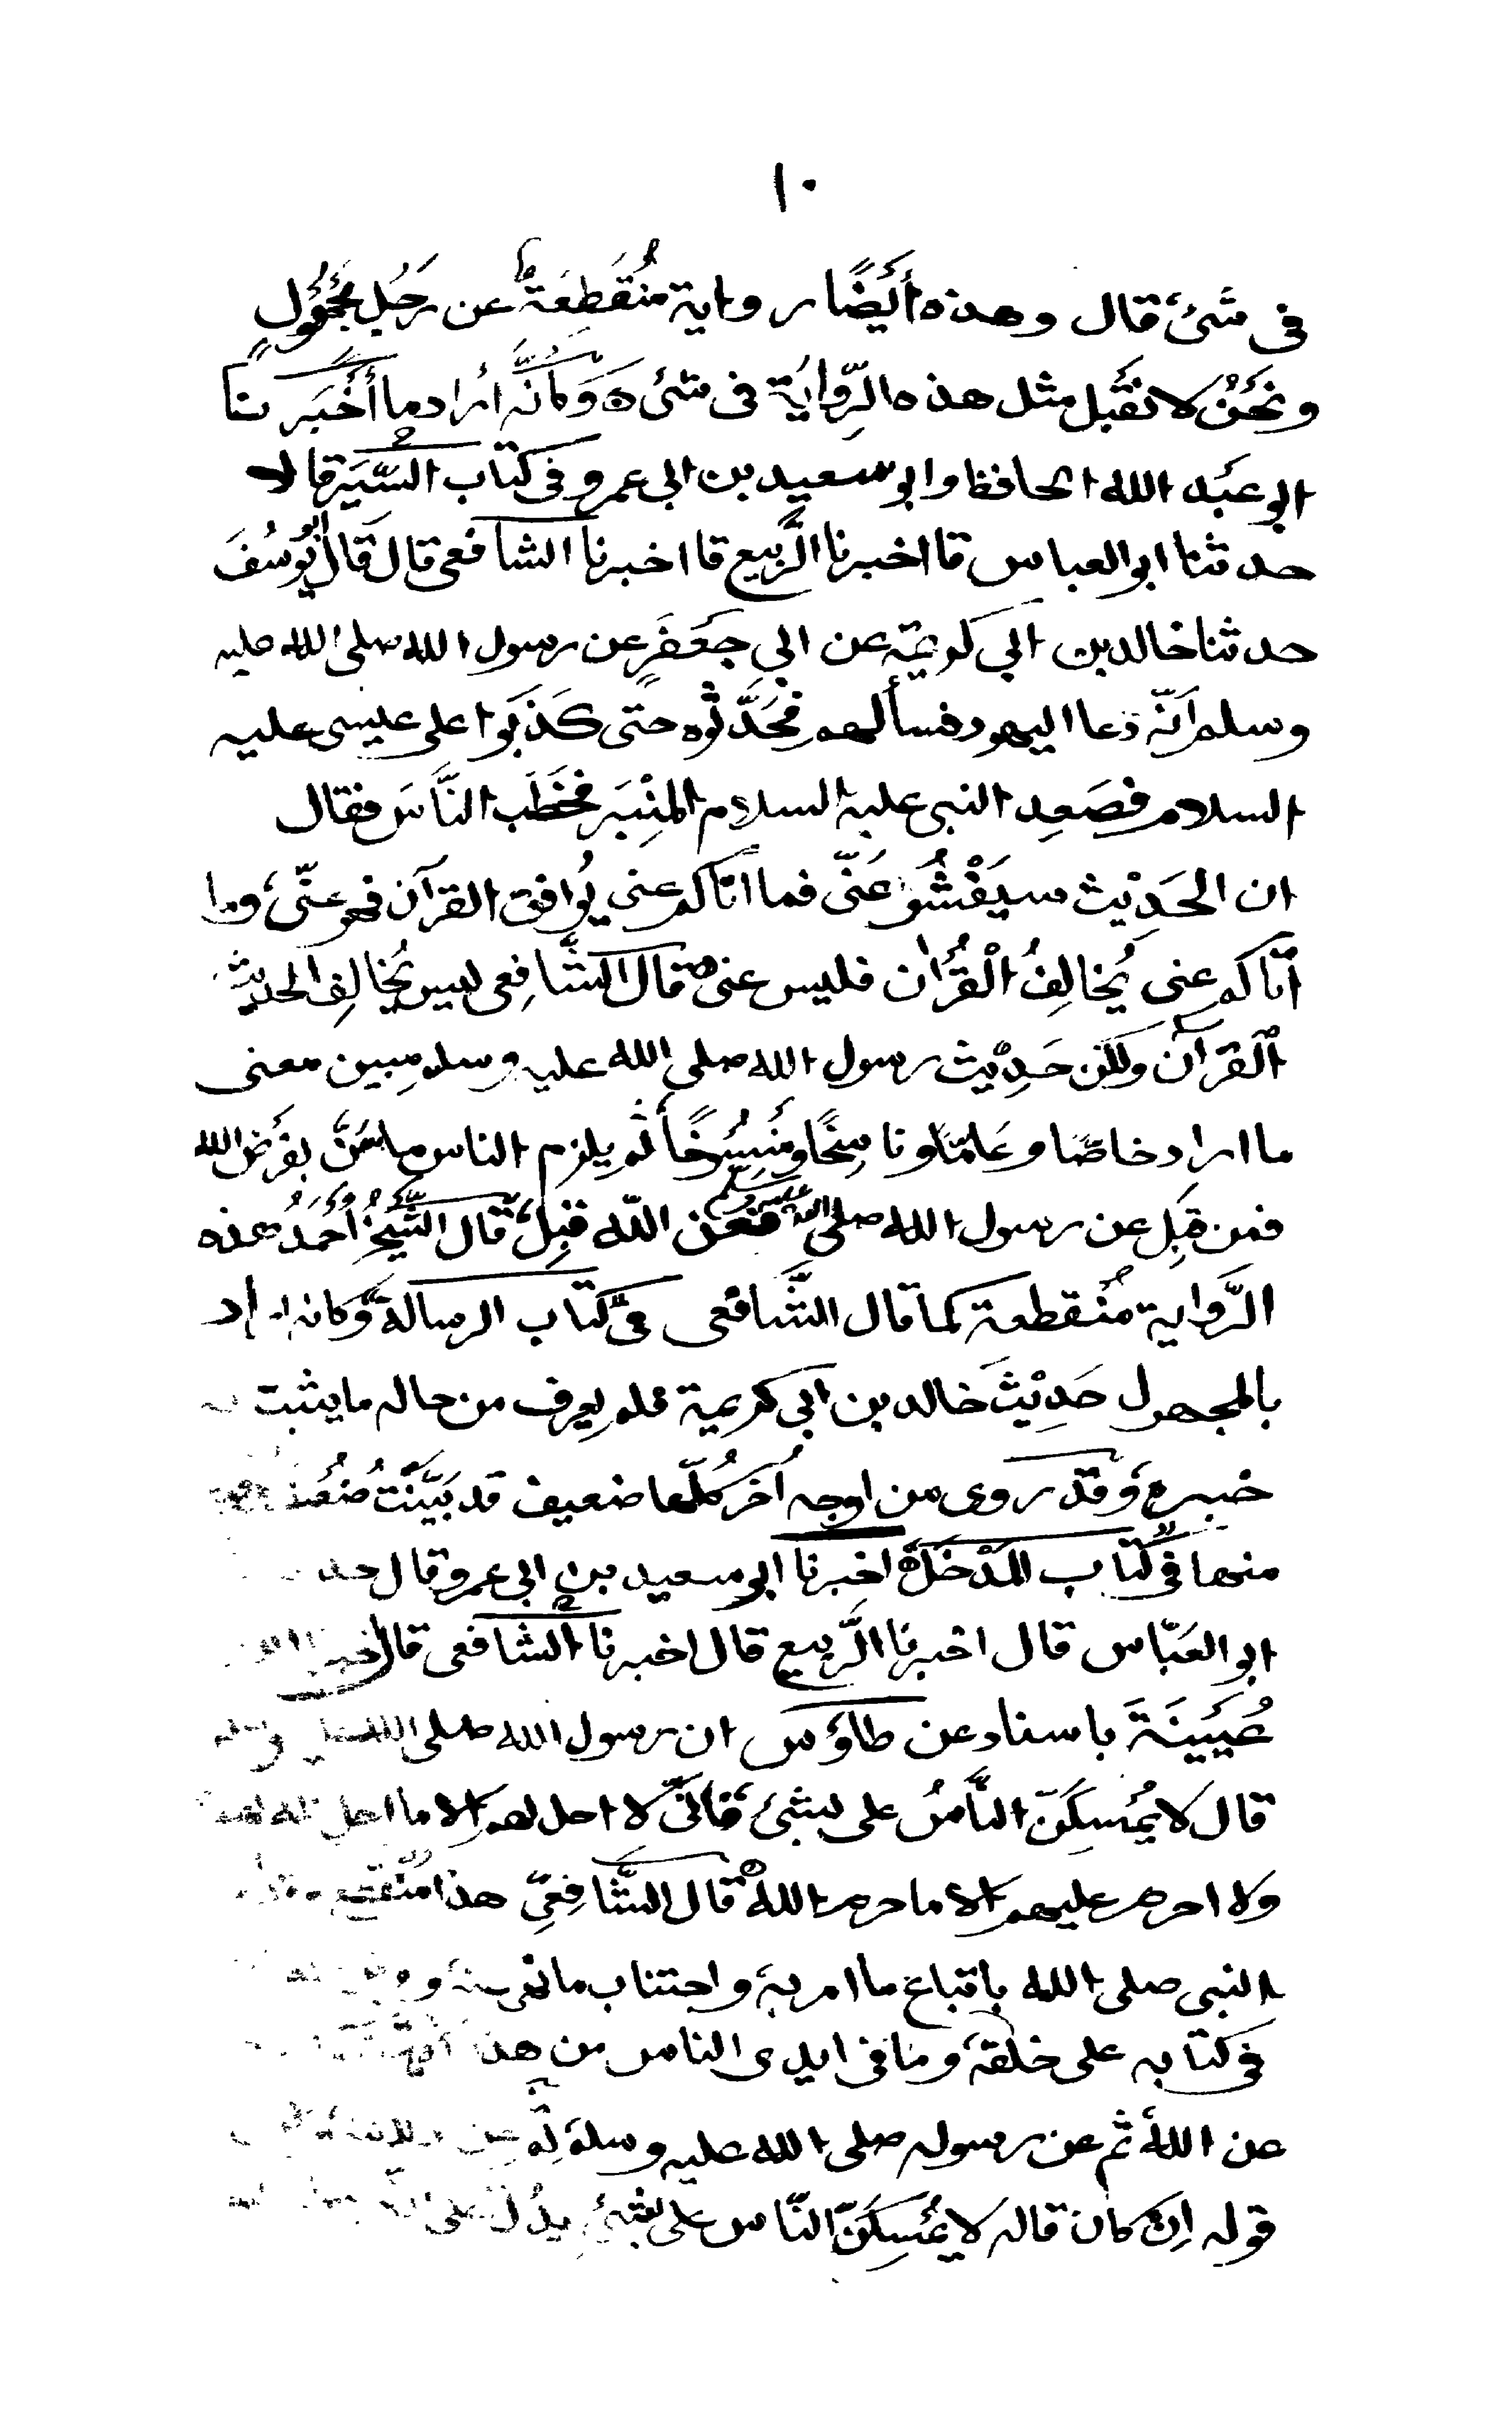 ١٠
في شئ قال وهذه أَيْضًا رواية مُنْقَطِعَةٌ عن رَجُلٍ مَجْهُولٍ
ونَحْنُ لا نَقْبل مثل هذه الرِّوَايَة في شئ ه وَكَأَنَّه اراد ما أَخْبَرنا
ابو عَبْد الله الحافظ وابو سعيد بن ابي عمرو في كتاب السِّيَر قالا
حدثنا ابو العباس قا اخبرنا الرَّبيع قا اخبرنا الشافعي قال قَالَ ابو يُوسُفَ
حدثنا خالد بن ابي كريمة عن ابي جَعْفَرٍ عن رسول الله صلى الله عليه
وسلم اَنّه دَعا اليهود فسألهم فَحَدَّثُوه حتى كَذَبُوا على عيسى عليه
السلام فصَعِد النبي عليه السلام المِنْبَر فخَطَب النَّاسَ فقال
ان الحَدِيْث سيَفْشُوْ عَنّى فما اتاكم عنى يُوافق القرآن فهو عنّى وما
اتاكم عنى يُخالِفُ الْقُرْاٰن فليس عنى قال الشَّافِعى ليس يُخَالِف الحديثُ
القرآن ولكن حَدِيْث رسول الله صلى الله عليه وسلم مبين معنى
ما اراد خاصًا وعَامًا وناسِخًا ومَنْسُوخًا ثم يلزم الناس ما سَنَّ بفَرْض الله
فمن قَبِل عن رسول الله صلى الله عليه وسلم فَعَن الله قَبِلَ قال الشَّيْخُ اَحْمَدُ هذه
الرَّواية مُنْقطعة كما قال الشَّافعى في كتاب الرسالة وَكانه اراد
بالمجهول حَدِيْثَ خالد بن ابي كريمة فلم يعرف من حاله ما يثبت به
خبره وَقَدْ روى من اوجه اُخَر كُلّها ضعيف قد بَيَّنْتُ ضُعْف
منها في كتاب المَدْخَل ه اخبرنا ابو سعيد بن ابي عمرو قال حد
ابو العَبّاس قال اخبرنا الرَّبيع قال اخبرنا الشافعى قال اخبرنا
عُيَيْنَةَ باسناد عن طاؤس ان رسول الله صلى الله
قال لا يُمْسِكَنّ النَّاسُ على بشئ فَانّى لا احل لهم الا ما احل الله
ولا احرم عليهم الا ما حرم الله ه قال الشَّافِعِى هذا منقطع
النبى صلى الله باتباع ما امر به واجتناب ما نهى عنه
في كتابه على خلقه وما في ايدى الناس من هذا
عن الله ثم عن رسوله صلى الله عليه وسلم ثم عن
قوله اِن كان قاله لا يُمْسِكَنّ النّاس على بشئ يدُل على